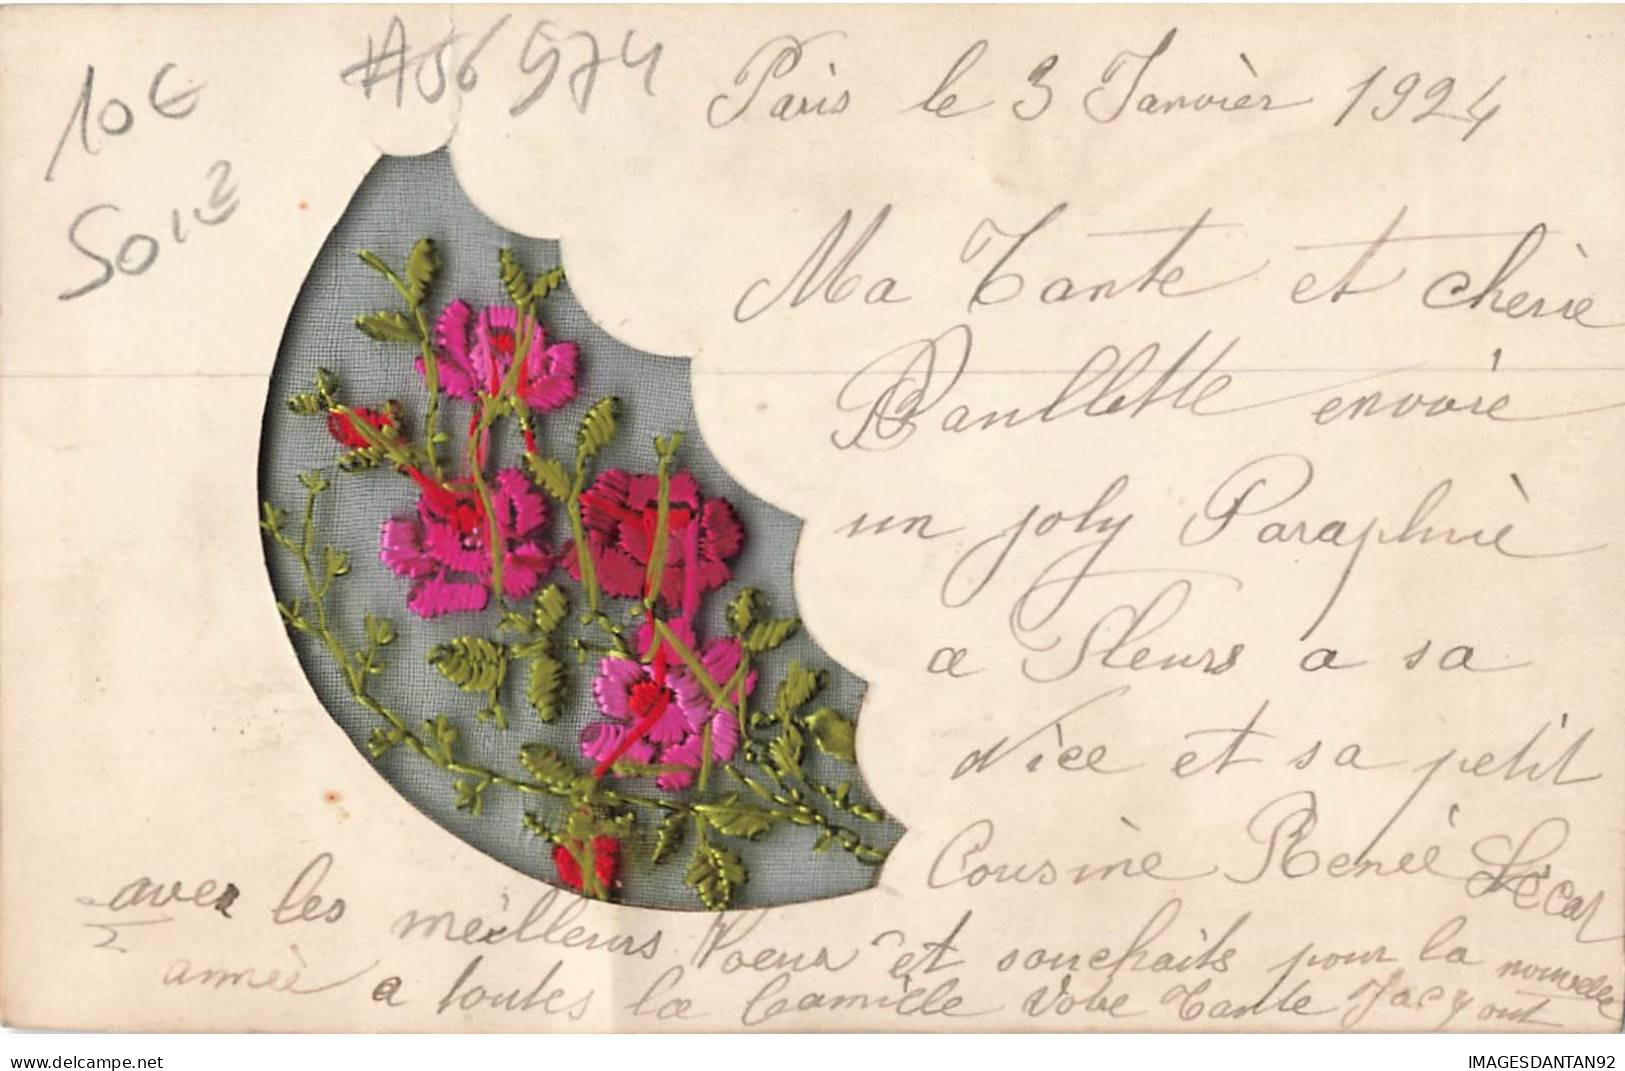 10€
SOIE
#A56974
Paris le 3 Janvièr 1924
Ma Tante et chèrie
Paullette envoie
un joly Parapluiè
a Fleurs a sa
Nice et sa petit
Cousinè Renéé Sécal
avec les méilleurs Voeux et souchaits pour la nouvelle
année a toutes la Camille Vobe Tante Jacyout
www.delcampe.net
IMAGESDANTAN92